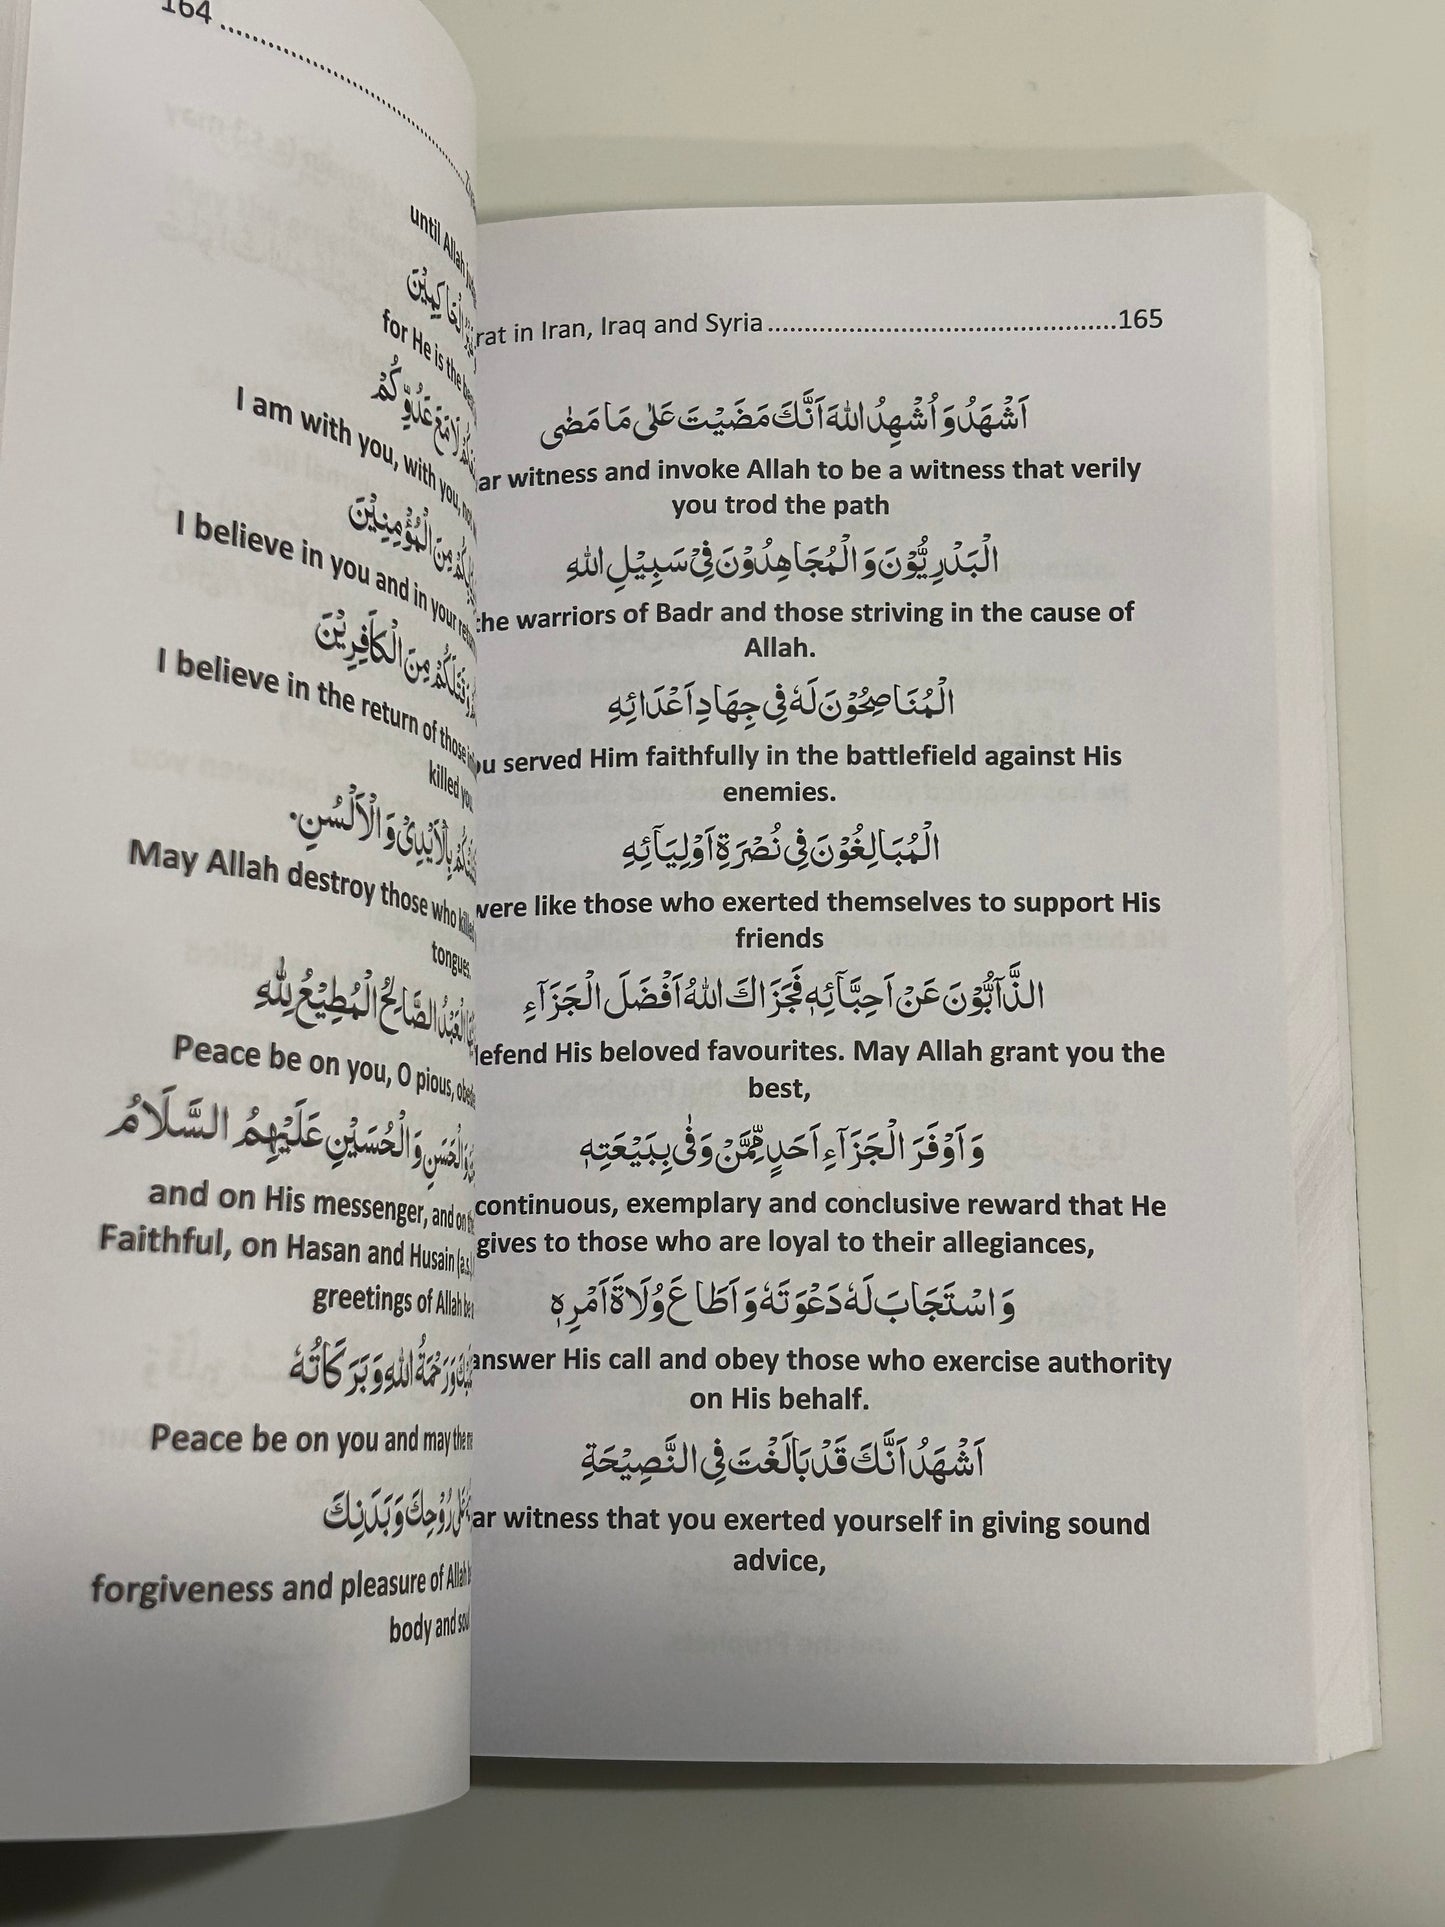 164
until Allah
الْحَاكِمِيْنَ
for He is the
لَا مَعَ عَدُوِّكُمْ
I am with you, with you,
مِنَ الْمُؤْمِنِيْنَ
I believe in you and in your
قَتَلَكُمْ مِنَ الْكَافِرِيْنَ
I believe in the return of those
killed you.
بِالْاَيْدِيْ وَ الْاَلْسُنِ.
May Allah destroy those who killed
tongues.
الْعَبْدُ الصَّالِحُ الْمُطِيْعُ لِلّٰهِ
Peace be on you, O pious,
وَالْحَسَنِ وَالْحُسَيْنِ عَلَيْهِمُ السَّلَامُ
and on His messenger, and on
Faithful, on Hasan and Husain (a.s.)
greetings of Allah be
وَرَحْمَةُ اللّٰهِ وَبَرَكَاتُهٗ
Peace be on you and may the
رُوْحِكَ وَبَدَنِكَ
forgiveness and pleasure of Allah
body and
in Iran, Iraq and Syria......165
اَشْهَدُ وَ اُشْهِدُ اللّٰهَ اَنَّكَ مَضَيْتَ عَلٰى مَا مَضٰى
witness and invoke Allah to be a witness that verily
you trod the path
الْبَدْرِيُّوْنَ وَ الْمُجَاهِدُوْنَ فِيْ سَبِيْلِ اللّٰهِ
the warriors of Badr and those striving in the cause of
Allah.
الْمُنَاصِحُوْنَ لَهٗ فِي جِهَادِ اَعْدَائِهِ
served Him faithfully in the battlefield against His
enemies.
الْمُبَالِغُوْنَ فِي نُصْرَةِ اَوْلِيَآئِهِ
were like those who exerted themselves to support His
friends
الذَّآبُّوْنَ عَنْ اَحِبَّآئِهٖ فَجَزَاكَ اللّٰهُ اَفْضَلَ الْجَزَآءِ
defend His beloved favourites. May Allah grant you the
best,
وَ اَوْفَرَ الْجَزَآءِ اَحَدٍ مِّمَّنْ وَفٰى بِبَيْعَتِهٖ
continuous, exemplary and conclusive reward that He
gives to those who are loyal to their allegiances,
وَ اسْتَجَابَ لَهٗ دَعْوَتَهٗ وَ اَطَاعَ وُلَاةَ اَمْرِهٖ
answer His call and obey those who exercise authority
on His behalf.
اَشْهَدُ اَنَّكَ قَدْ بَالَغْتَ فِي النَّصِيْحَةِ
witness that you exerted yourself in giving sound
advice,